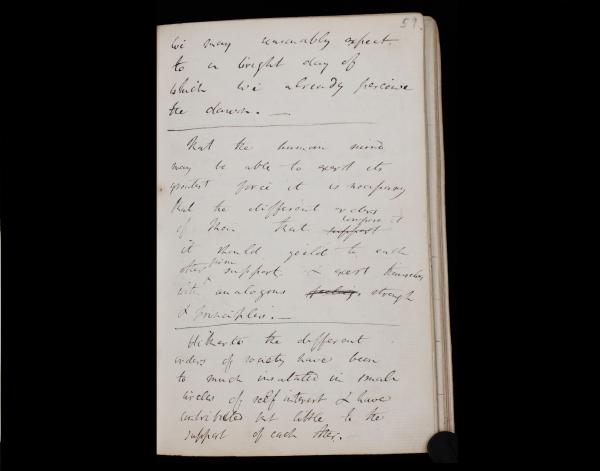 59.
we may reasonably expect
to a bright day of
which we already perceive
the dawn. —
That the human mind
may be able to exert its
greatest force it is necessary
that the different orders
of men that compose it
support
it should yield to each
other firm support & exert themselves
with analogous feelings strength
& principles. —
Hitherto the different
orders of society have been
to much insulated in small
circles of self interest & have
contributed but little to the
support of each other.